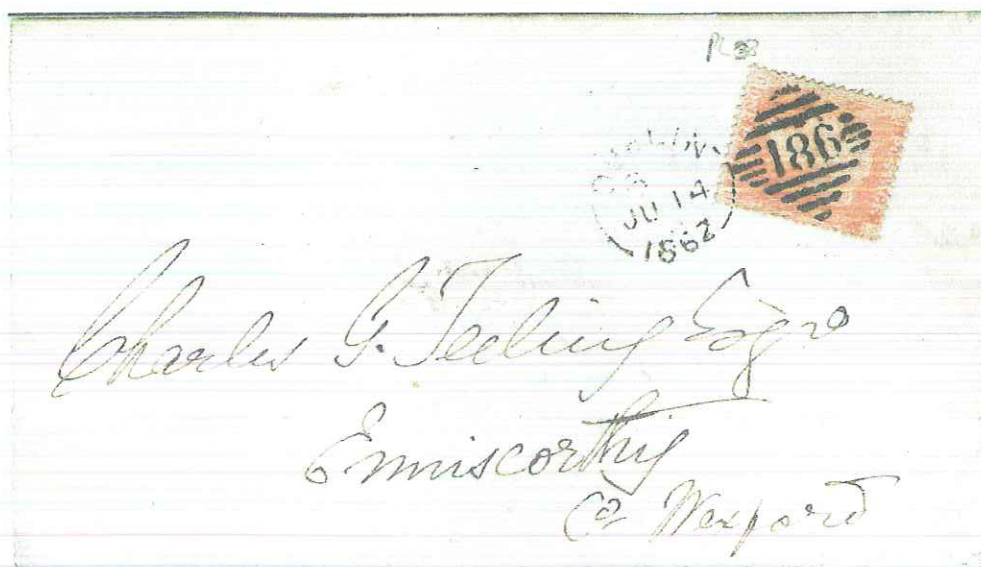 186
JU 14
1862
Charles G. Teeling Esqre
Enniscorthy
Co Wexford